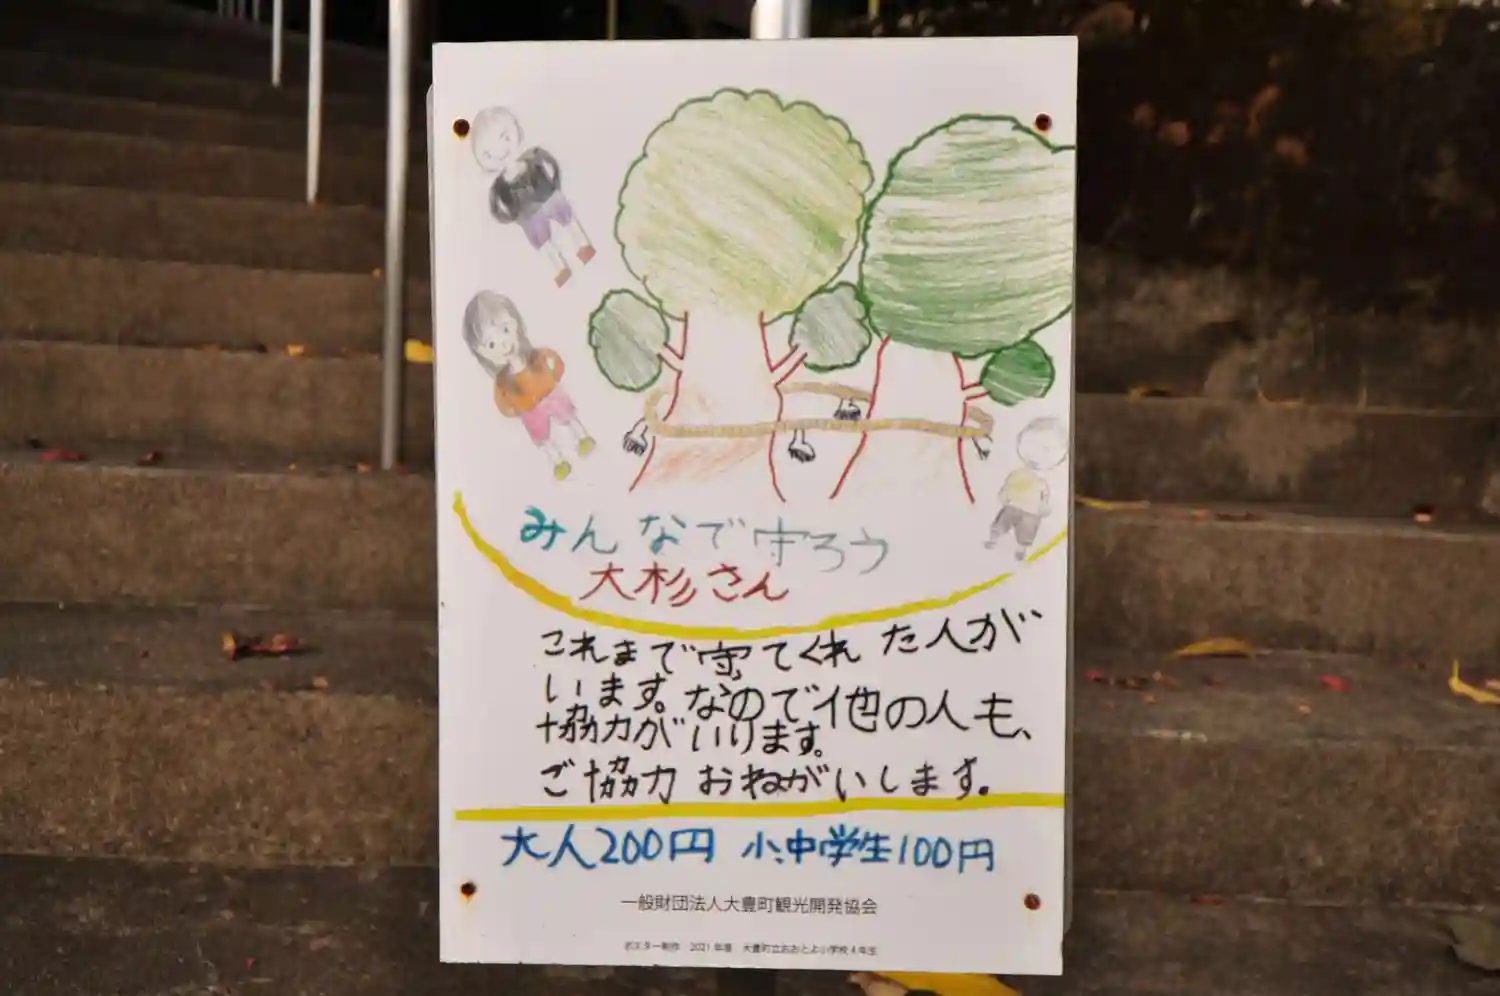 みんなで守ろう
大杉さん
これまで守てくれた人が
います。なので他の人も、
協力がいります。
ご協力おねがいします。
大人200円 小、中学生100円
一般財団法人大豊町観光開発協会
ポスター制作 2021年度 大豊町立おおとよ小学校4年生